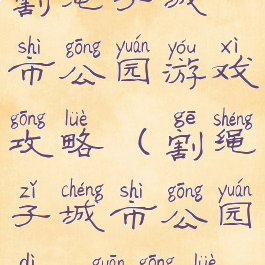 割绳子城
shì gōng yuán yóu xì
市公园游戏
gōng lüè gē shéng
攻略（割绳
zǐ chéng shì gōng yuán
子城市公园
dì guān gōng lüè